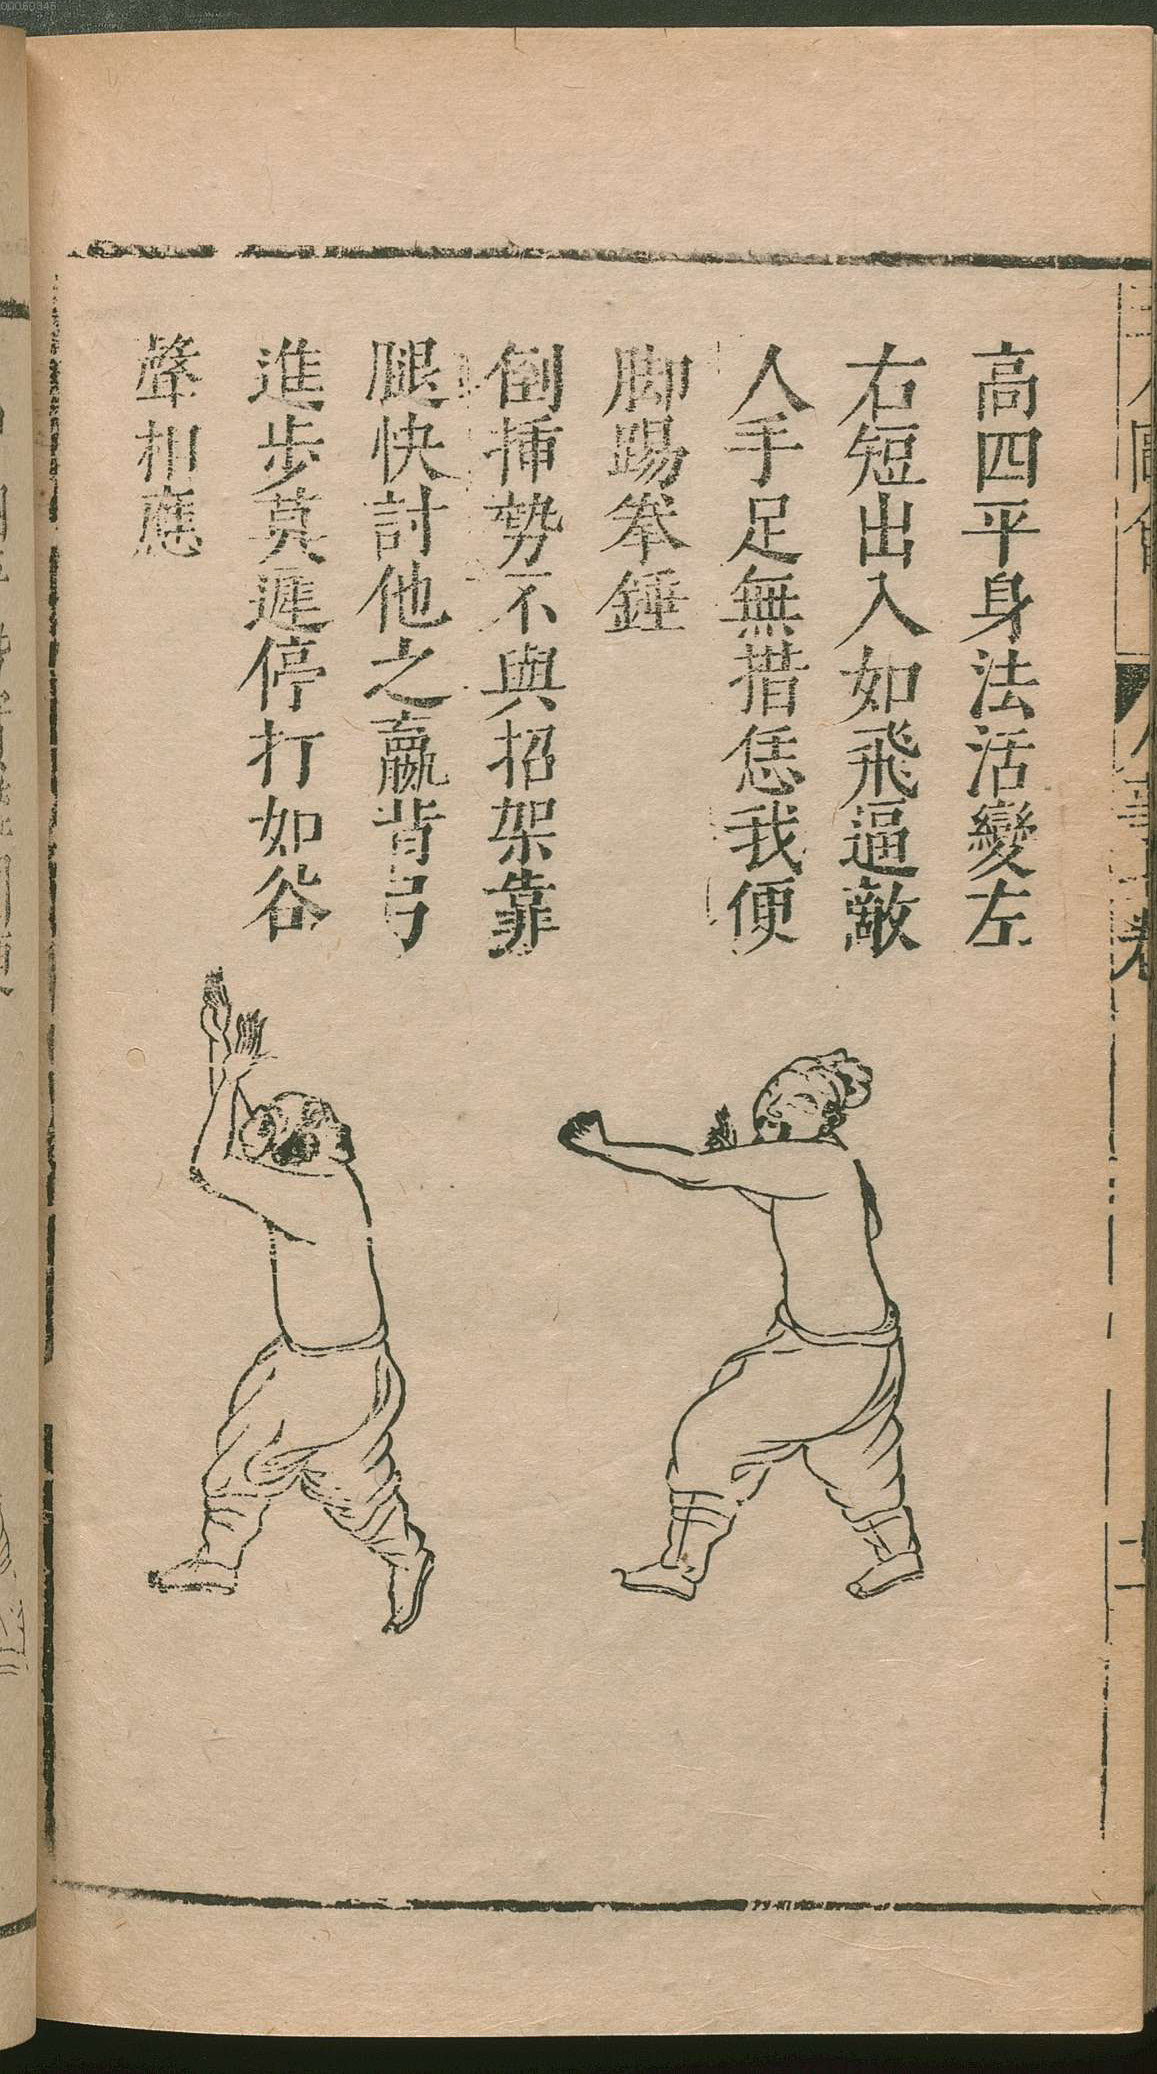 高四平身法活變左
右短出入如飛逼敵
人手足無措恁我便
脚踢拳錘
倒插勢不與招架靠
腿快討他之贏背弓
進步莫遲停打如谷
聲相應